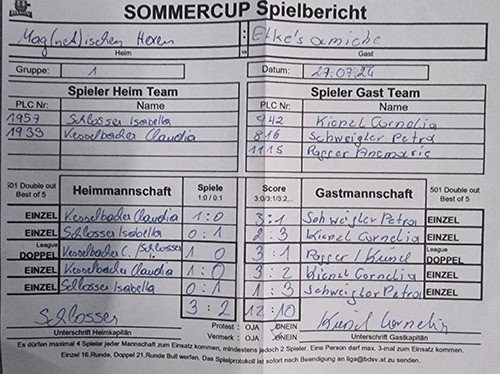 SOMMERCUP Spielbericht
Mag(net)ischen Hexen : Elke's amiche
Heim vs Gast
Gruppe: 1 Datum: 27.07.24
Spieler Heim Team Spieler Gast Team
PLC Nr: Name PLC Nr: Name
1957 Schlosser Isabella 942 Kienel Cornelia
1933 Kesselbacher Claudia 816 Schweigler Petra
1115 Passer Annemarie
501 Double out Best of 5 Heimmannschaft Spiele 1:0 / 0:1 Score 3:0/3:1/3:2,.. Gastmannschaft 501 Double out Best of 5
EINZEL Kesselbacher Claudia 1:0 3:1 Schweigler Petra EINZEL
EINZEL Schlosser Isabella 0:1 2:3 Kienel Cornelia EINZEL
League DOPPEL Kesselbacher C./Schlosser 1:0 3:1 Passer / Kienel League DOPPEL
EINZEL Kesselbacher Claudia 1:0 3:2 Kienel Cornelia EINZEL
EINZEL Schlosser Isabella 0:1 1:3 Schweigler Petra EINZEL
3:2 12:10
Schlosser Kienel Cornelia
Protest : OJA ONEIN
Unterschrift Heimkapitän Vermerk : OJA ONEIN Unterschrift Gastkapitän
Es dürfen maximal 4 Spieler jeder Mannschaft zum Einsatz kommen, mindestens jedoch 2 Spieler. Eine Person darf max. 3-mal zum Einsatz kommen.
Einzel 16.Runde, Doppel 21.Runde Bull werfen. Das Spielprotokoll ist sofort nach Beendigung an liga@bdsv.at zu senden.